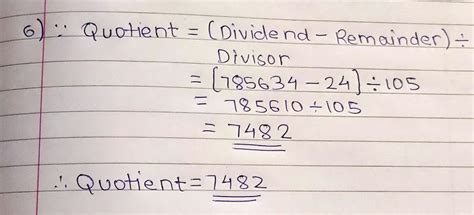 6) ∵ Quotient = (Dividend - Remainder) ÷
Divisor
= [785634 - 24] ÷ 105
= 785610 ÷ 105
= 7482
∴ Quotient = 7482